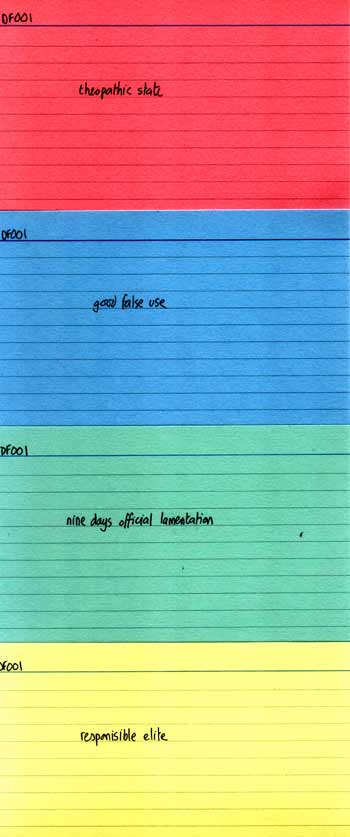 DF001
theopathic state
DF001
good false use
DF001
nine days official lamentation
DF001
responisible elite